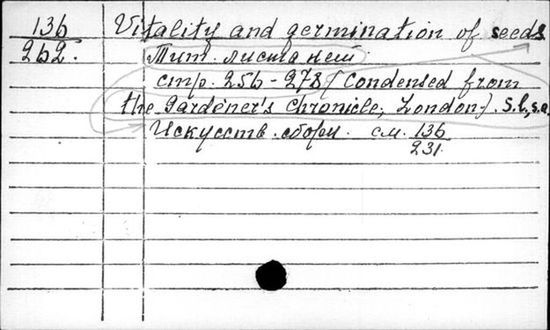 136 Vitality and germination of seeds
262. Тит. листа нет
стр. 256-278 (Condensed from
the Gardener's Chronicle, London). S.l., s.a.
Искусств. сборн. см. 136
231.